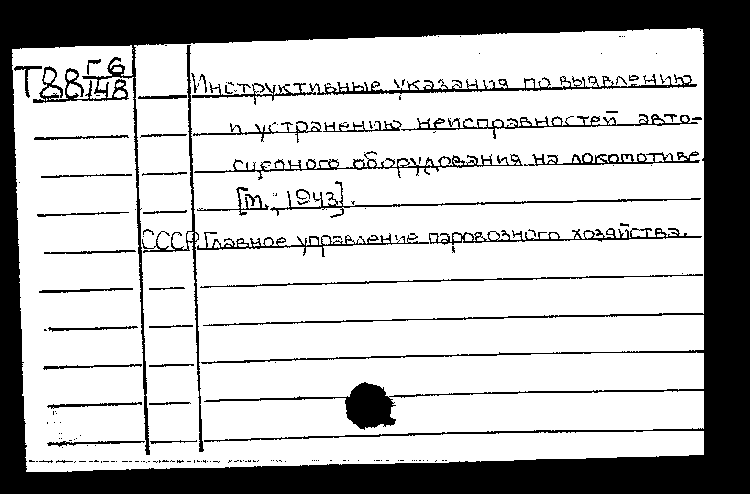 Т88 Г6/148
Инструктивные указания по выявлению
и устранению неисправностей авто-
сцепного оборудования на локомотиве.
[М., 1943].
СССР. Главное управление паровозного хозяйства.